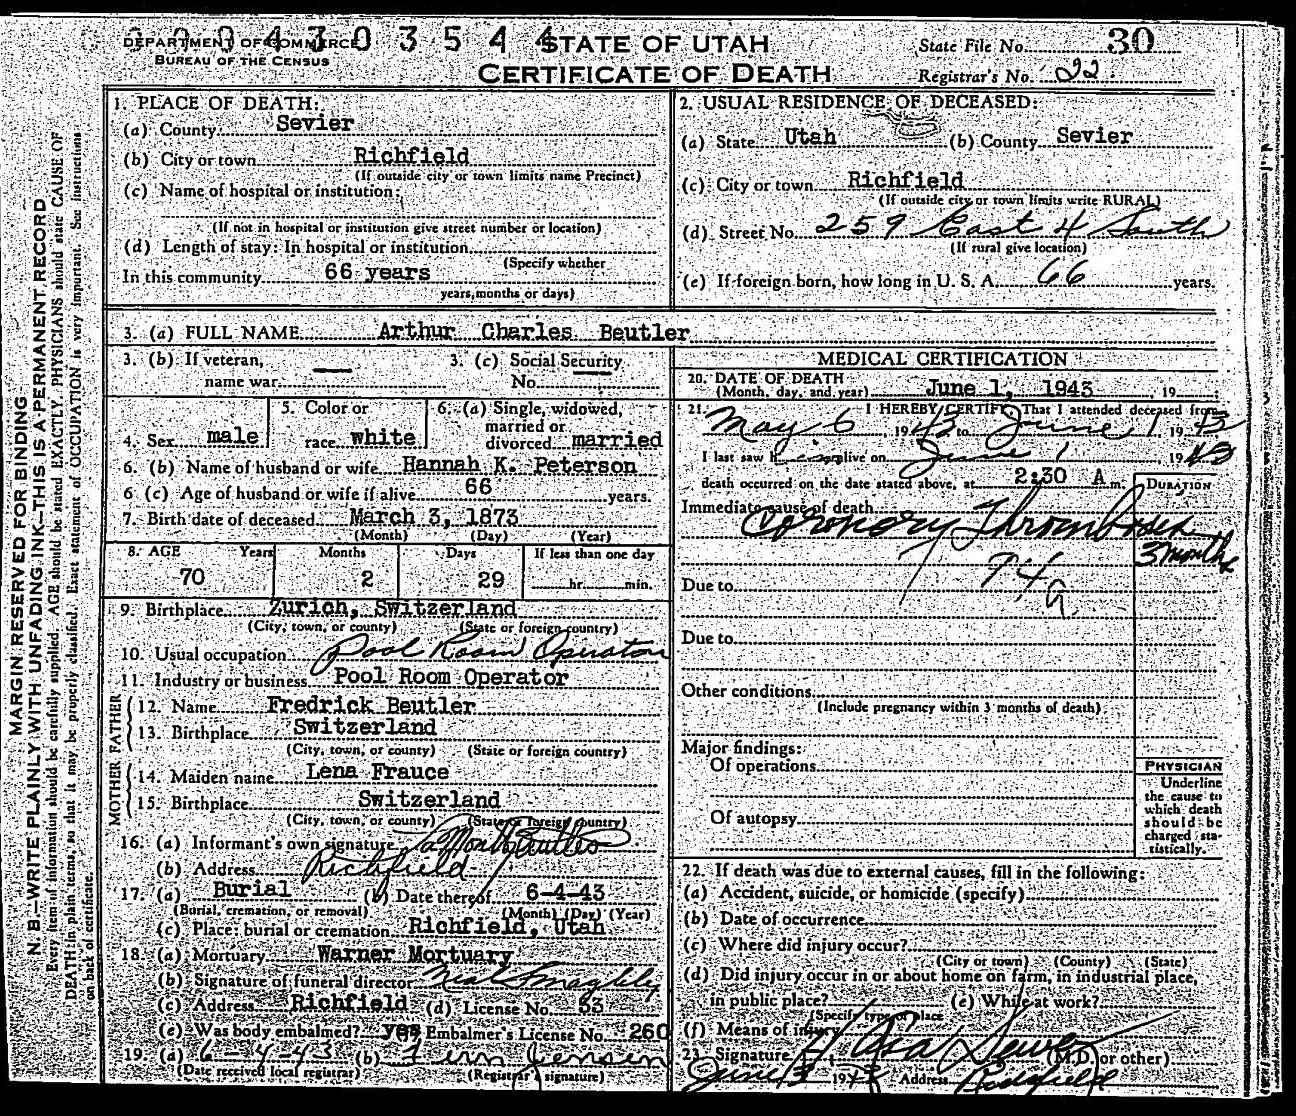 0004303544
DEPARTMENT OF COMMERCE
BUREAU OF THE CENSUS
STATE OF UTAH
CERTIFICATE OF DEATH
State File No. 30
Registrar's No. 22.
MARGIN RESERVED FOR BINDING
N. B.—WRITE PLAINLY WITH UNFADING INK—THIS IS A PERMANENT RECORD
Every item of information should be carefully supplied. AGE should be stated EXACTLY. PHYSICIANS should state CAUSE OF
DEATH in plain terms, so that it may be properly classified. Exact statement of OCCUPATION is very important. See instructions
on back of certificate.
1. PLACE OF DEATH:
(a) County Sevier
(b) City or town Richfield
(If outside city or town limits name Precinct)
(c) Name of hospital or institution:
(If not in hospital or institution give street number or location)
(d) Length of stay: In hospital or institution
(Specify whether
In this community 66 years
years, months or days)
2. USUAL RESIDENCE OF DECEASED:
(a) State Utah (b) County Sevier
(c) City or town Richfield
(If outside city or town limits write RURAL)
(d) Street No. 259 East 4 South
(If rural give location)
(e) If foreign born, how long in U. S. A. 66 years.
3. (a) FULL NAME Arthur Charles Beutler
3. (b) If veteran, name war —
3. (c) Social Security No. —
4. Sex male
5. Color or race white
6. (a) Single, widowed, married or divorced married
6. (b) Name of husband or wife Hannah K. Peterson
6 (c) Age of husband or wife if alive 66 years.
7. Birth date of deceased March 3, 1873
(Month) (Day) (Year)
8. AGE Years Months Days If less than one day
70 2 29 hr. min.
9. Birthplace Zurich, Switzerland
(City, town, or county) (State or foreign country)
10. Usual occupation Pool Room Operator
11. Industry or business Pool Room Operator
FATHER
12. Name Fredrick Beutler
13. Birthplace Switzerland
(City, town, or county) (State or foreign country)
MOTHER
14. Maiden name Lena Frauce
15. Birthplace Switzerland
(City, town, or county) (State or foreign country)
16. (a) Informant's own signature LaMonth Beutler
(b) Address Richfield
17. (a) Burial (b) Date thereof 6-4-43
(Burial, cremation, or removal) (Month) (Day) (Year)
(c) Place: burial or cremation Richfield, Utah
18. (a) Mortuary Warner Mortuary
(b) Signature of funeral director Neal
(c) Address Richfield (d) License No. 53
(e) Was body embalmed? yes Embalmer's License No. 260
19. (a) 6-4-43 (b) Fern Jensen
(Date received local registrar) (Registrar's signature)
MEDICAL CERTIFICATION
20. DATE OF DEATH
(Month, day, and year) June 1, 1943, 19
21. I HEREBY CERTIFY That I attended deceased from
May 6, 1943 to June 1, 1943
I last saw him alive on June 1 1943
death occurred on the date stated above, at 2:30 A.m.
DURATION
Immediate cause of death
Coronary Thrombosis
3 months
94a
Due to
Due to
Other conditions
(Include pregnancy within 3 months of death)
Major findings:
Of operations
Of autopsy
PHYSICIAN
Underline
the cause to
which death
should be
charged sta-
tistically.
22. If death was due to external causes, fill in the following:
(a) Accident, suicide, or homicide (specify)
(b) Date of occurrence
(c) Where did injury occur?
(City or town) (County) (State)
(d) Did injury occur in or about home on farm, in industrial place,
in public place? (e) While at work?
(Specify type of place
(f) Means of injury
23. Signature H. Asa Dewey (M.D. or other)
June 3 1943 Address Richfield